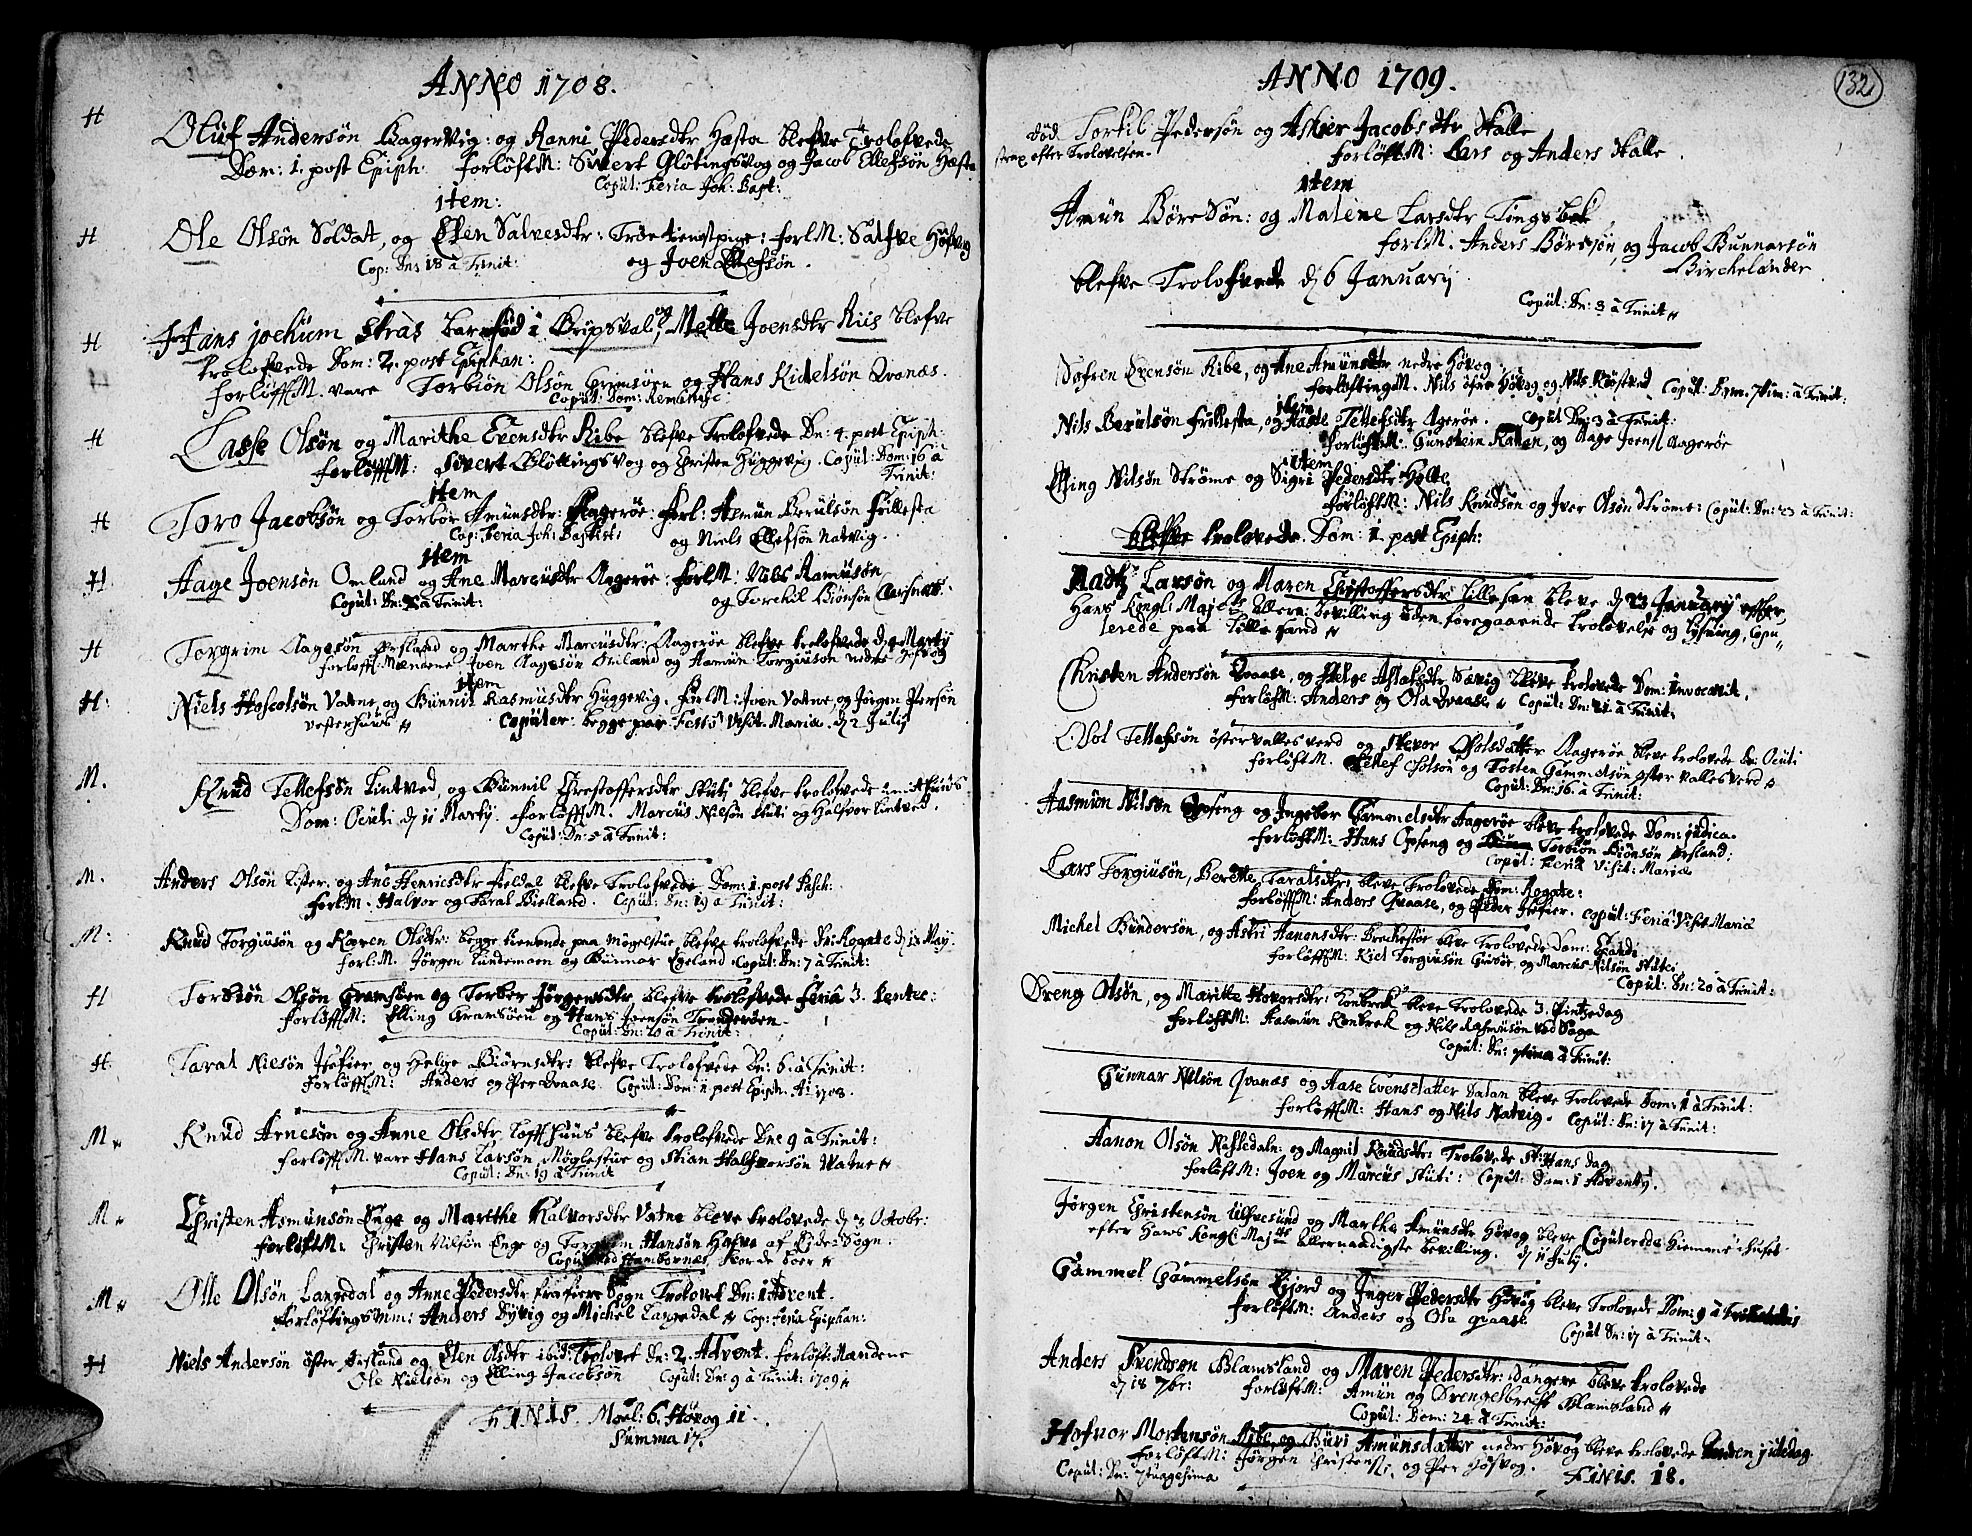 ANNO 1708.
H
Oluf Andersøn Bagervig: og Ranni Pedersdtr Hæsta blefve Trolofvede
Dom: 1. post Epiph: Forløft M: Sivert Glötingsvog og Jacob Ellefsøn Hæsta
Copul: Feria Joh: Bapt:
item:
H Ole Olsøn Soldat, og Elen Salvesdtr: Tröe tienstpige: ForlM: Salfve Høfvig
Cop: Dn: 18 à Trinit: og Joen Ellefsøn.
H Hans jochum Stras barnfød i Gripsval, og Mette Joensdtr Riis blefve
trolofvede Dom: 2. post Epiphan:
forløffM. vare Torbiön Olsøn Grimsøen og Hans Kidelsøn Qvanæs.
Copul: Dom: Reminisc:
H Lasse Olsøn og Marithe Evensdtr Ribe blefve Trolofvede Dn: 4. post Epiph:
forløffM: Sivert Glöttingsvog og Christen Hyggevig. Copul: Dom: 16 à
Trinit:
item
H Toro Jacobsøn og Torbor Amunsdtr: Aagerøe: Forl: Aamun Berulsøn Frillesta
Cop: Feria Joh: Baptist: og Niels Ellefsøn Natvig.
item
H Aage Joensøn Omland og Ane Marcusdtr Aagerøe: ForlM: Nils Ramusøn
Copul: Dn: à Trinit: og Torchil Biönsøn
H Torgrim Aagesøn Ørsland og Marthe Marcusdtr: Aagerøe blefve trolofvede d. Marty
forløff Mændene Joen Aagesøn Omland og Aamun Torgiusøn nedre Høfvog
item
H: Niels Hoscolsøn Vatne, og Gunnil Rasmusdtr Hyggevig. ForlM: Joen Vatne, og Jörgen Persøn
vesterhuus Copuler: begge par Festo Visit: Mariæ. d. 2 July
M. Knud Tellefsøn Lintved, og Gunnil Chrestoffersdtr Stuti blefve trolofvede
Dom: Oculi d. 11 Marty. forløffM. Marcus Nielsøn Stuti og Halfvor Lintved.
Copul: Dn: 5 à Trinit:
M. Anders Olsøn Lister. og Ane Henricsdtr Fieldal blefve Trolofvede Dom: 1. post Pasch:
ForlM. Halvor og Taral Bieland. Copul: Dn: 19 à Trinit:
M: Knud Torgiusøn og Karen Olsdtr: begge tienende paa Møgelstue blefve trolofvede Dn: Rogate d. 13 May.
forl:M. Jörgen Lindemoen og Gunnar Egeland. Copul: Dn: 7 à Trinit:
H Torbiön Olsøn Gramsøen og Torber Jörgensdtr blefve trolofvede Feria 3. Pentec:
forløffM: Elling Gramsøen og Hans Joensøn Trønderøen.
Copul: Dn: 20 à Trinit:
H. Taral Nielsøn Hæfier, og Helge Biörnsdtr: blefve Trolofvede Dn: 6. à Trinit:
forløffM: Anders og Per Qvaase. Copul: Dom: 1 post Epiph: Ao 1708.
M Knud Arnesøn og Anne Olsdtr Lofthuus blefve trolofvede Dn: 9 à Trinit:
forløffM. vare Hans Larsøn Möglestue og Stian Halfversøn Vatne
Copul: Dn: 19 à Trinit
M Christen Asmunsøn Enge og Marithe Halvorsdtr Vatne bleve trolofvede d. 3 Octobr:
forløftM: Christen Nilsøn Enge og Torgrim Hansøn Hafve af Eide Sogn.
Copul:
M Olle Olsøn Langedal og Anne Pedersdtr fra fiere Sogn Trolovet Dn: 1 Advent.
Forløftingsmm: Anders Dyvig og Michel Langedal Cop: Feria Epiphan:
H Niels Andersøn öster Ørsland og Elen Olsdtr ibid: Trolovet Dn: 2. Advent. forløft:Mændene
Ole Nielsøn og Elling Jacobsøn Copul: Dn: 9 à Trinit: 1709
FINIS. Moel: 6. Høvog 11.
Summa 17.
ANNO 1709. 132
død Torkil Pedersøn og Asbier Jacobsdtr Kalle
strax efter Trolovelsen. Forløft M: Lars og Anders Kalle.
item
Amun BöreSøn: og Malene Larsdtr Tingsbek
forlM. Anders Börresøn, og Jacob Gunnarsøn
Birchelander
blefve Trolofvede d. 6 January
Copul: Dn: 3 à Trinit
Søfren Evensøn Ribe, og Ane Amunsdtr nedre Høvog
forløftingM. Nils öfre Høvog og Nils Copul: Dom. 7tim: à Trinit:
item
Nils Berulsøn Frillesta, og Aase Tellefsdtr Agerøe. Copul Dn: 3 à Trinit:
forløftM: Gunstein Kallen, og Aage Joens: Aagerøe
item
Elling Nilsøn Ströme og Sigri Pedersdtr: Holte
forløftM: Nils Knudsøn og Iver Olsøn Strøme: Copul: Dn: 23 à Trinit:
blefve trolovede. Dom: 1. post Epiph:
Madtz Larsøn og Maren Christoffersdtr: Lillesan bleve d. 23 January efter
Hans Kongl: Maj:ts allern: bevilling uden foregaaende trolovelse og lysning, Copu
lerede paa Lille Sand
Christen Andersøn Qvaase, og Helge Aslaksdtr Sævig bleve trolovede Dom: Invocavit.
forløftM: Anders og Ola Qvaase Copul: Dn: 21 à Trinit:
Olol Tellefsøn östervallesverd og Alevor Ololsdatter Aagerøe bleve trolovede Dn: Oculi
forløftM. Tellef Ololsøn og Tosten Gammelsøn øster Vallesverd
Copul: Dn: 16. à Trinit:
Aasmun Nilsøn Opseng og Ingebor Gammelsdtr Aagerøe bleve trolovede Dom: judica.
forløftM: Hans Opseng og Torbiön Biönsøn Ørsland:
Copul: Feria Visit: Mariæ
Lars Torgiusøn, Berethe Taralsdtr: bleve Trolovede Dom: Rogate:
forløffM: Anders Qvaase, og Peder Hæfier. Copul: Feria Visit Mariæ
Michel Gundersøn, og Astri Aanonsdtr: Brechestöe bleve Trolovede Dom: Exaudi
forløffM: Kiel Torgiusøn og Marcus Nilsøn Stuti
Copul: Dn: 20 à Trinit:
Dreng Olsøn, og Marithe Hovorsdtr: Konbrok bleve Trolovede 3. Pintzedag
forløftM: Aasmun Konbrok og Nils Rasmusøn ved Saga
Copul: Dn: 9tima à Trinit:
Gunnar Nilsøn Qvanæs og Aase Evensdatter Dalan bleve Trolovede Dom: 1 à Trinit:
forløffM: Hans og Nils Natvig. Copul: Dn: 17 à Trinit:
Aanon Olsøn og Magnil Knudsdtr: Trolovede St: Hans dag
forløftM: Joen og Marcus Stuti: Copul: Dom: 1 Adventy.
Jørgen Christensøn Ulfvesund og Marthe Amunsdtr Høvog bleve Copulerede hiemme i huset
efter Hans Kongl: Maj:ts allernaadigste bevilling. d. 11 July.
Gammel Gammelsøn Eijord og Inger Pedersdtr Høvog bleve Trolovede Dom: 9 à
forløftM: Anders og Ola Qvaase Copul Dn: 17 à Trinit:
Anders Svendsøn Glamsland og Maren Pedersdtr: Dangere bleve trolovede
d. 18 7br: forløftM: Amun og Drengelbrecht Glamsland
Copul: Dom: 24. à Trinit:
Hafvor Mortensøn Ribe og Guri Amunsdatter nedre Høvog bleve trolovede Anden juledag
forløftM: Jørgen Christens:, og Per Høfvog. FINIS. 18.
Copul: Dn: